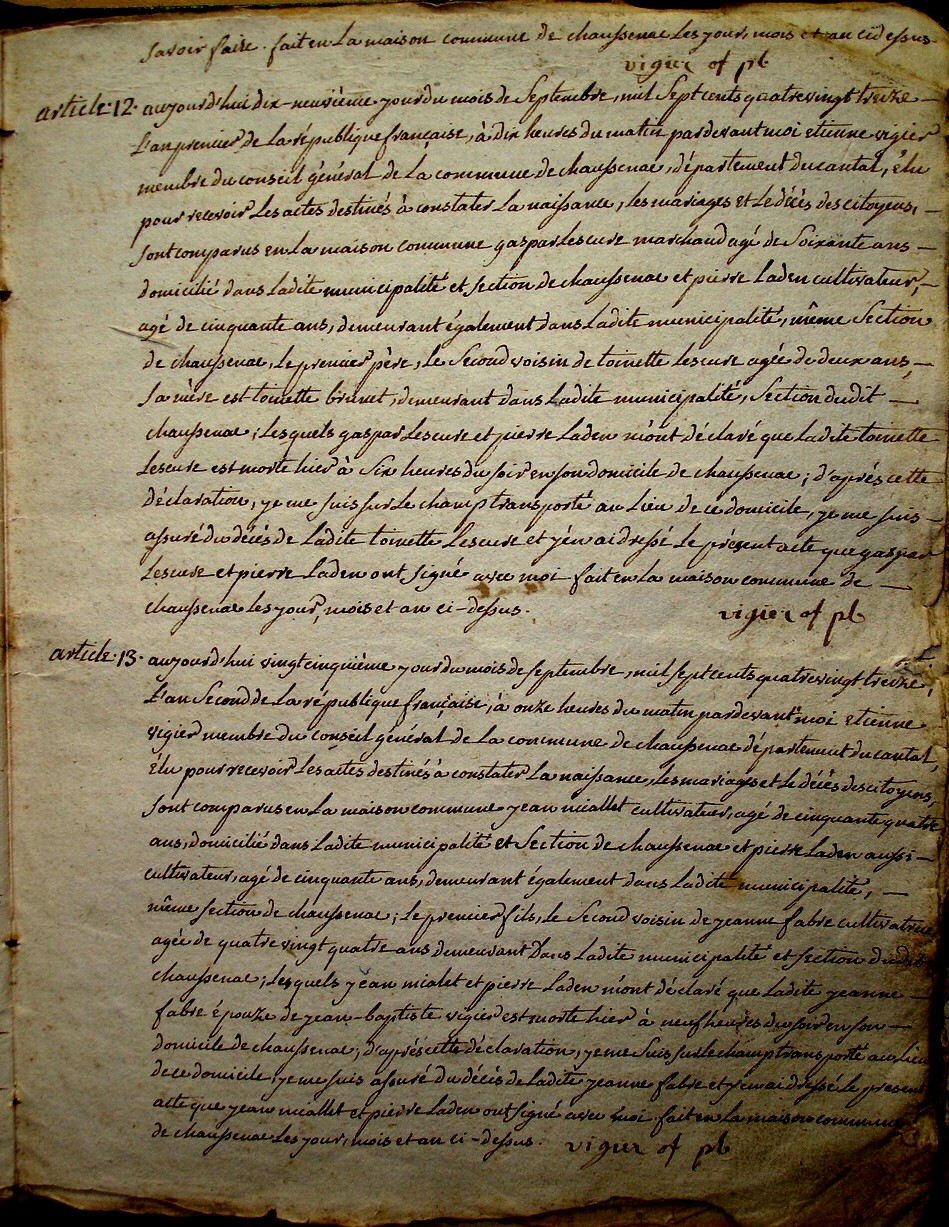 savoir faire. fait en la maison commune de chaussenac les jour, mois et an cidessus
vigier of pb
article.12. aujourd'hui dix-neuvième jour du mois de septembre, mil sept cents quatre vingt treize
l'an premier de la république française, à dix heures du matin pardevant moi etienne vigier
membre du conseil général de la commune de chaussenac, département du cantal, élu
pour recevoir les actes destinés à constater la naissance, les mariages et le décès des citoyens,
sont comparus en la maison commune gaspar lescure marchand agé de soixante ans
domicilié dans ladite municipalité et section de chaussenac et pierre laden cultivateur,
agé de cinquante ans, demeurant également dans ladite municipalité, même section
de chaussenac, le premier père, le second voisin de toinette lescure agée de deux ans,
sa mère est toinette brunet, demeurant dans ladite municipalité, section dudit
chaussenac; lesquels gaspar lescure et pierre laden m'ont déclaré que ladite toinette
lescure est morte hier à six heures du soir en son domicile de chaussenac; d'après cette
déclaration, je me suis sur le champ transporté au lieu de ce domicile, je me suis
assuré du décès de ladite toinette lescure et j'en ai dressé le présent acte que gaspar
lescure et pierre laden ont signé avec moi fait en la maison commune de
chaussenac les jour, mois et an ci-dessus.
vigier of pb
article.13. aujourd'hui vingt cinquième jour du mois de septembre, mil sept cents quatre vingt treize,
l'an second de la république française, à onze heures du matin pardevant moi etienne
vigier membre du conseil général de la commune de chaussenac département du cantal,
élu pour recevoir les actes destinés à constater la naissance, les mariages et le décès des citoyens,
sont comparus en la maison commune jean miallet cultivateur, agé de cinquante quatre
ans, domicilié dans ladite municipalité et section de chaussenac et pierre laden aussi
cultivateur, agé de cinquante ans, demeurant également dans ladite municipalité,
même section de chaussenac; le premier fils, le second voisin de jeanne fabre cultivatrice
agée de quatre vingt quatre ans demeurant dans ladite municipalité et section dudit
chaussenac; lesquels jean mialet et pierre laden m'ont déclaré que ladite jeanne
fabre épouze de jean-baptiste vigier est morte hier à neuf heures du soir en son
domicile de chaussenac; d'après cette déclaration, je me suis sur le champ transporté au lieu
de ce domicile, je me suis assuré du décès de ladite jeanne fabre et j'en ai dressé le present
acte que jean miallet et pierre laden ont signé avec moi. fait en la maison commune
de chaussenac les jour, mois et an ci-dessus. vigier of pb